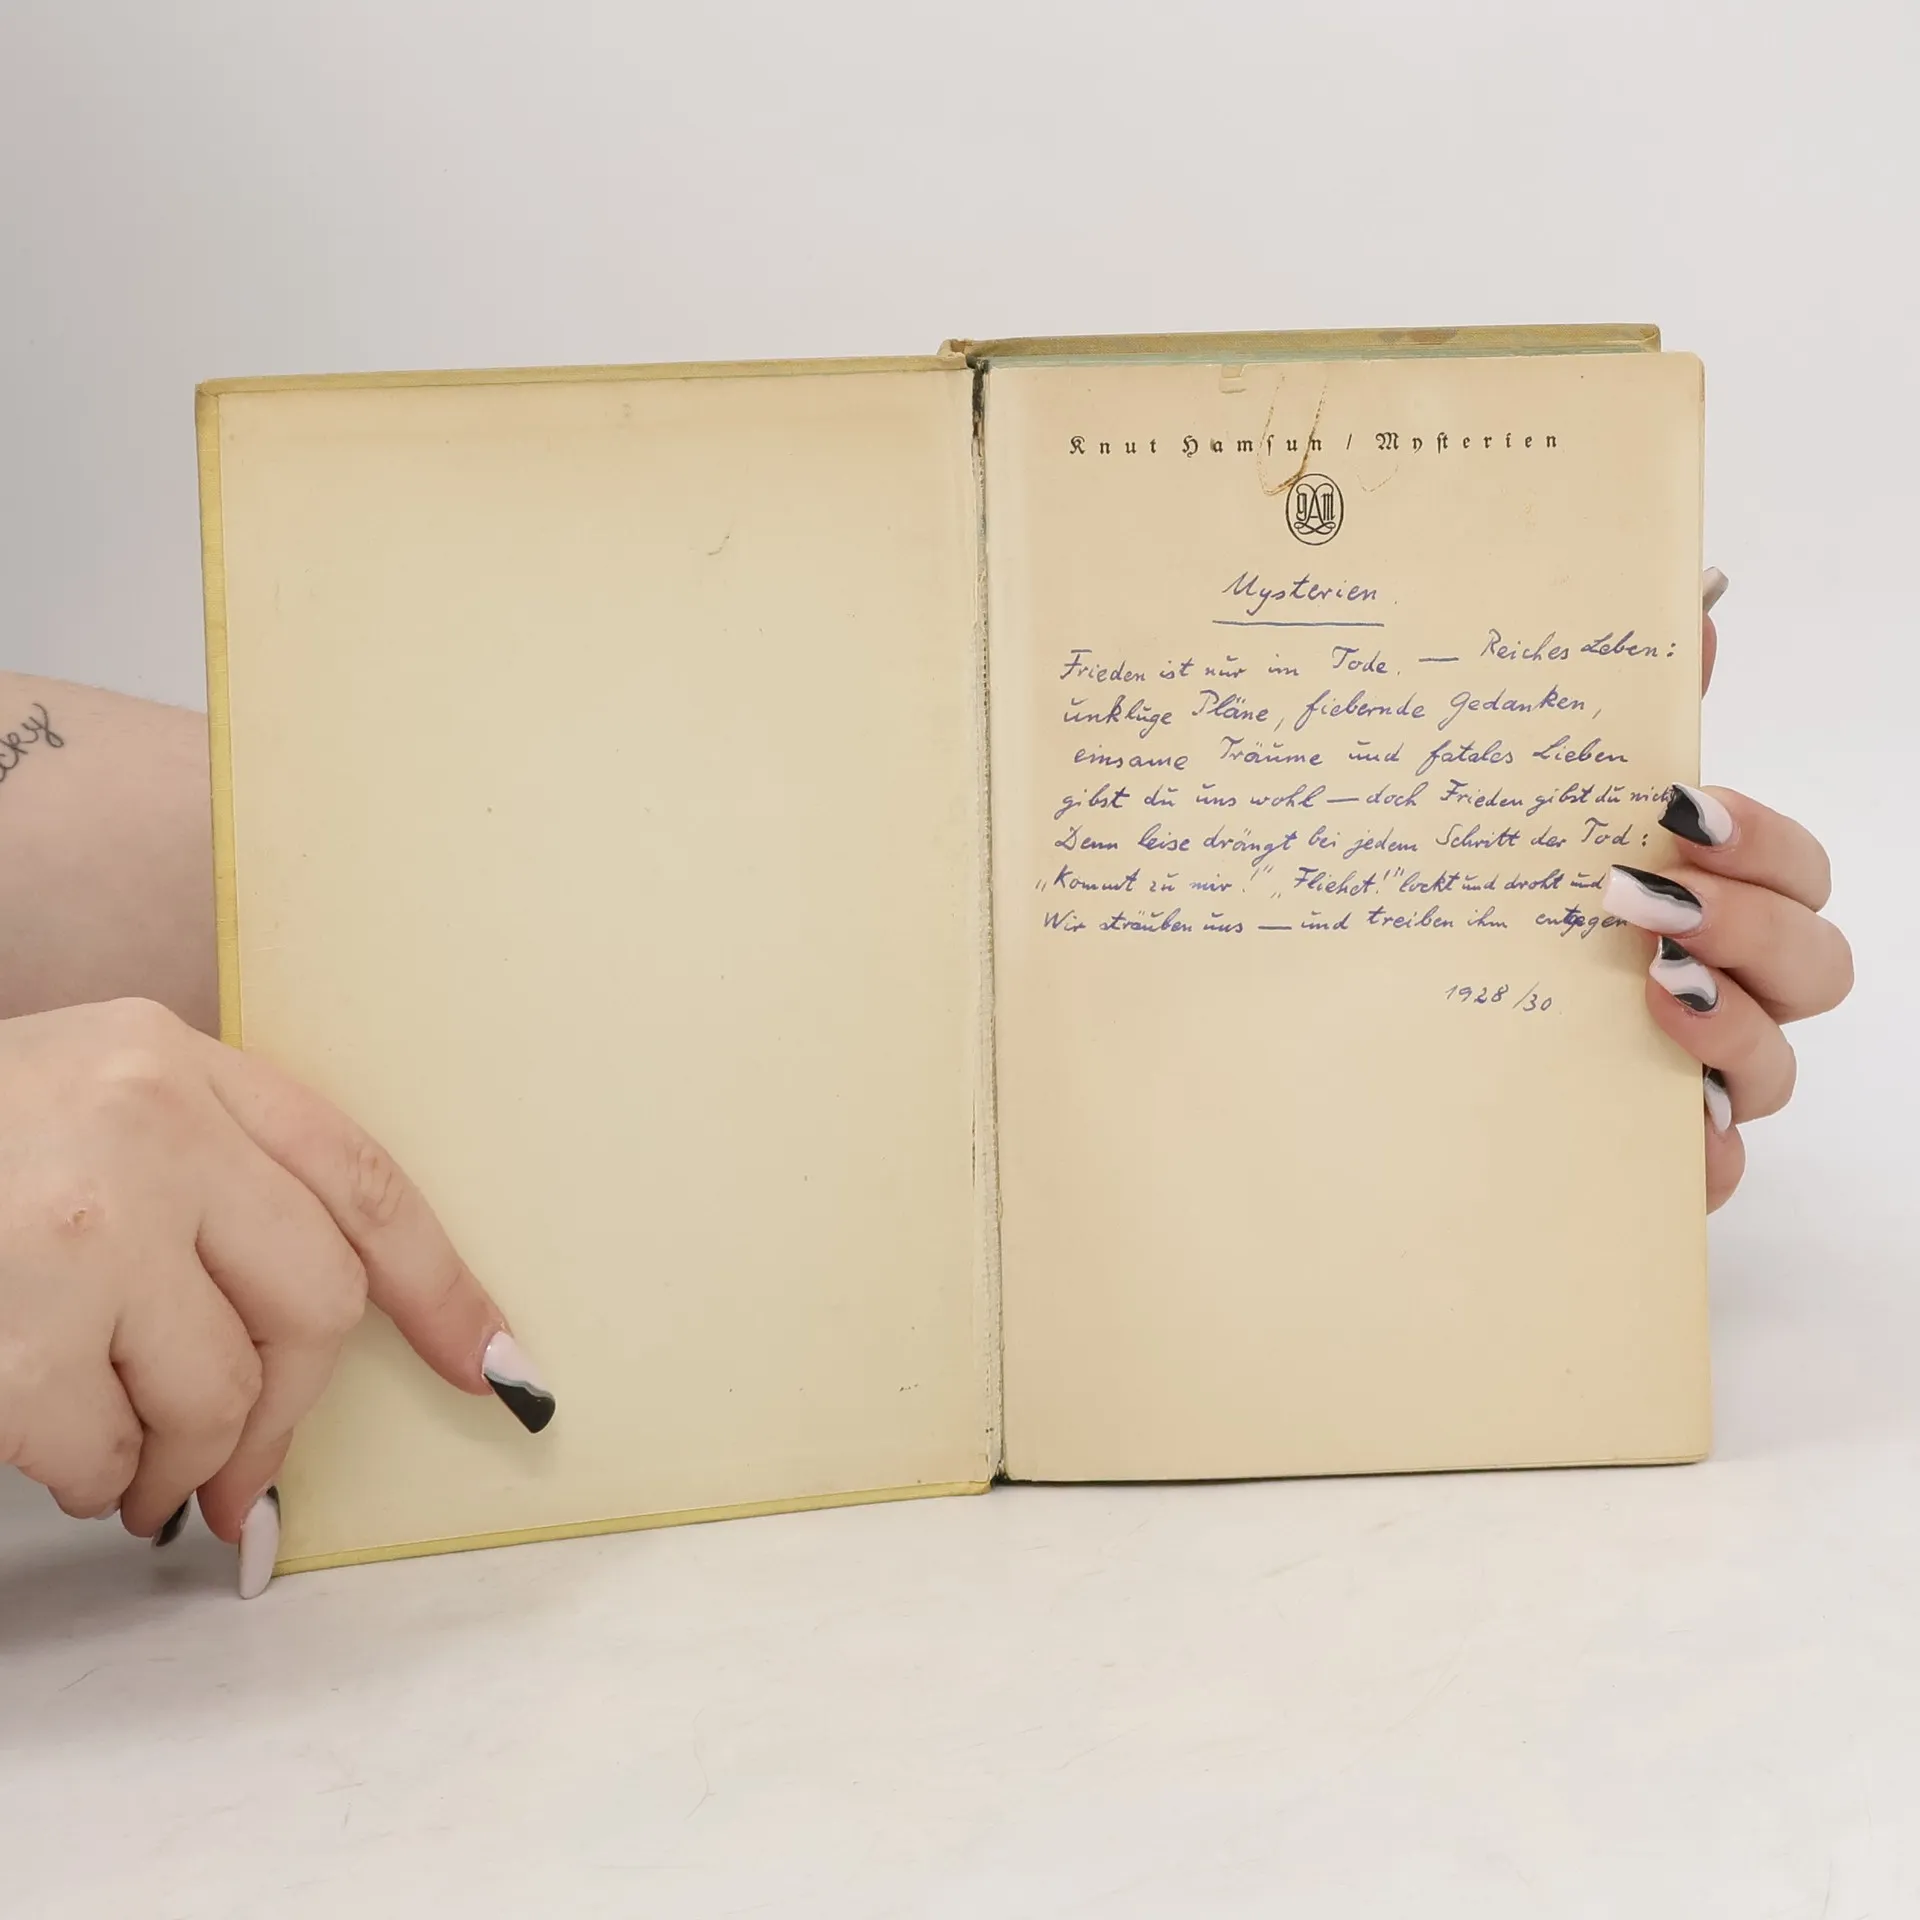 Knut Hamsun / Mysterien
gAm
Mysterien.
Frieden ist nur im Tode. — Reiches Leben:
unkluge Pläne, fiebernde Gedanken,
einsame Träume und fatales Lieben
gibst du uns wohl — doch Frieden gibst du nicht
Denn leise drängt bei jedem Schritt der Tod:
„Kommt zu mir!" „Fliehet!" lockt und droht und
Wir sträuben uns — und treiben ihm entgegen
1928/30.
cky